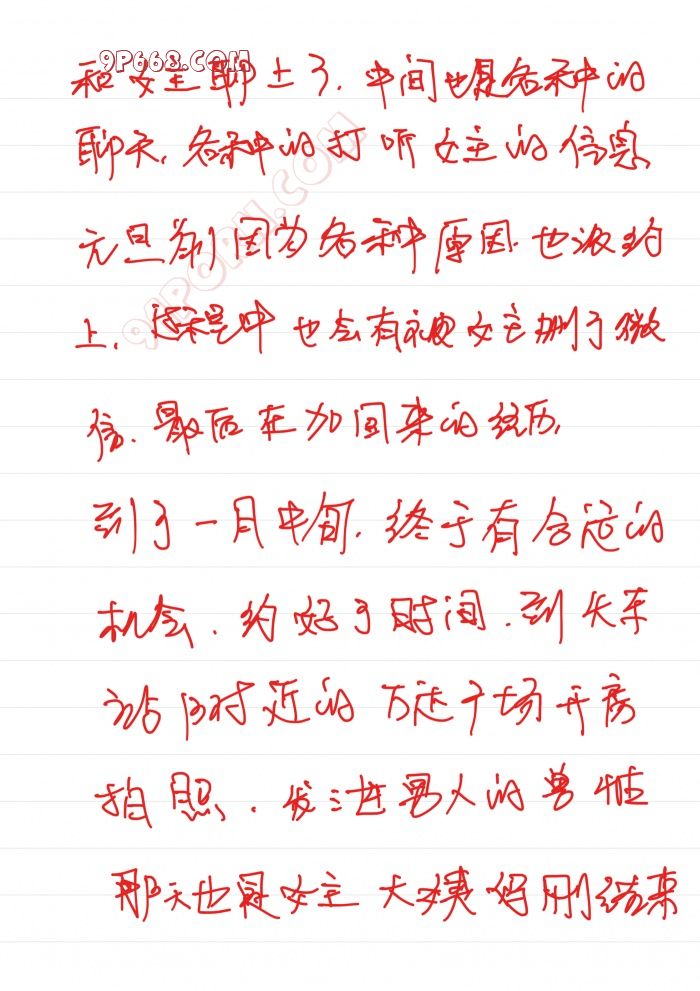 9P668.COM
和女主聊上了.中间也是各种的
聊天,各种的打听女主的信息
91PORN.COM
元旦前因为各种原因.也没约
上,过程中也会有被女主删了微
信.最后在加回来的经历,
到了一月中旬.终于有合适的
机会.约好了时间.到火车
站附近的万达广场开房
拍照.发泄男人的兽性
那天也是女主大姨妈刚结束